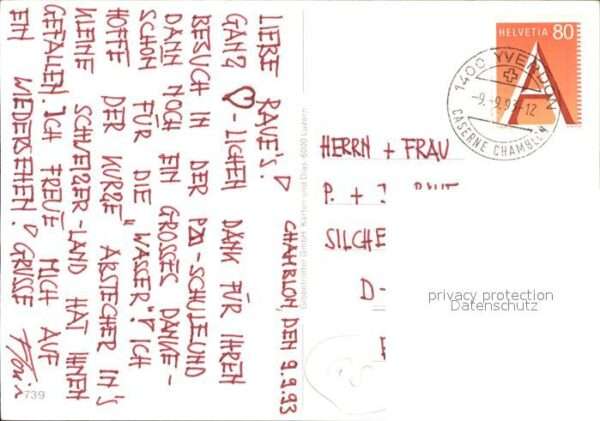 CHAMBLON, DEN 9.9.93
LIEBE RAVE'S!
GANZ ♡-LICHEN DANK FÜR IHREN
BESUCH IN DER PZ-SCHULE UND
DANN NOCH EIN GROSSES DANKE-
SCHÖN FÜR DIE "WASSER"! ICH
HOFFE DER KURZE ABSTECHER IN'S
KLEINE SCHWEIZER-LAND HAT IHNEN
GEFALLEN. ICH FREUE MICH AUF
EIN WIEDERSEHEN! GRÜSSE
739
HELVETIA 80
A
1400 YVERDON
-9.-9.93-12
CASERNE CHAMBLON
HERRN + FRAU
P. +
SILCHE
D-
privacy protection
Datenschutz